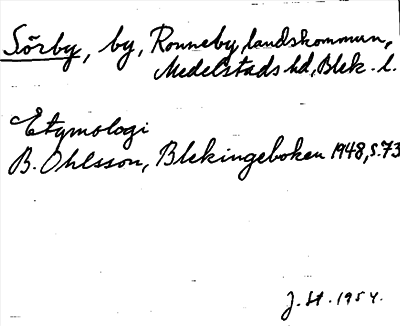 Sörby, by, Ronneby landskommun,
Medelstads hd, Blek. l.
Etymologi
B. Ohlsson, Blekingeboken 1948, s. 73
J. St. 1954.